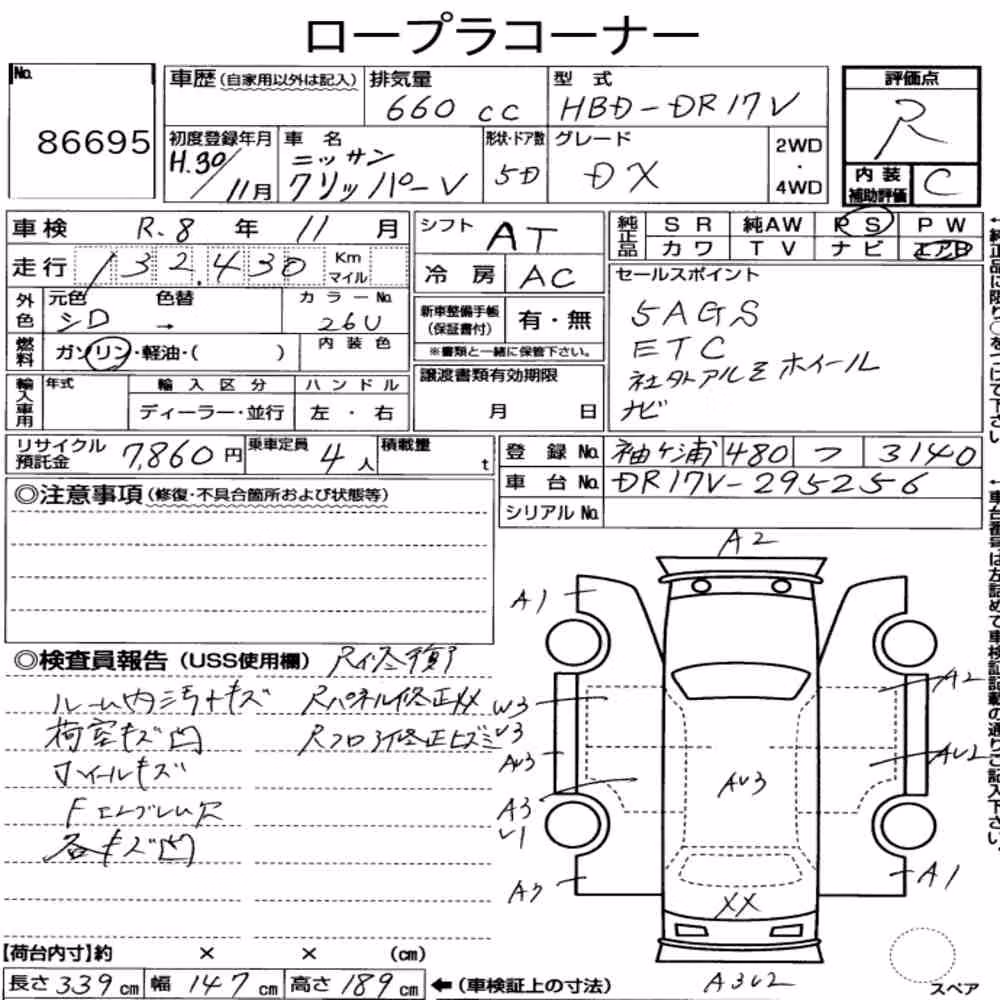 ロープラコーナー
No.
86695
車歴（自家用以外は記入）
排気量
660 cc
型式
HBD-DR17V
評価点
R
初度登録年月
H.30/11月
車名
ニッサン
クリッパーV
形状・ドア数
5D
グレード
DX
2WD
・
4WD
内装
補助評価
C
車検 R.8 年 11 月
シフト AT
純正品
SR 純AW PS PW
カワ TV ナビ エアB
走行 132,430 Km
マイル
冷房 AC
セールスポイント
5AGS
ETC
社外アルミホイール
ナビ
外色
元色 色替 カラーNo.
シロ → 26U
新車整備手帳
（保証書付）
有・無
※書類と一緒に保管下さい。
燃料
ガソリン・軽油・（ ）
内装色
譲渡書類有効期限
月 日
輸入車用
年式
輸入区分
ハンドル
ディーラー・並行
左・右
リサイクル
預託金
7,860円
乗車定員
4人
積載量
t
登録No. 袖ケ浦 480 つ 3140
車台No. DR17V-295256
シリアルNo.
◎注意事項（修復・不具合箇所および状態等）
◎検査員報告（USS使用欄）
R修復
ルーム内汚キズ
Rパネル修正XX
荷室キズ凹
Rフロア修正ヒズミ
ホイールキズ
Fエンブレム欠
各キズ凹
A2
A1
A2
W3
U3
AU3
AU2
AU3
A3
U1
A1
XX
A3U2
スペア
【荷台内寸】約 × × （cm）
長さ 339 cm 幅 147 cm 高さ 189 cm ←（車検証上の寸法）
←純正品に限り○をつけて下さい。
←車台番号は左詰めで車検証記載の通りご記入下さい。